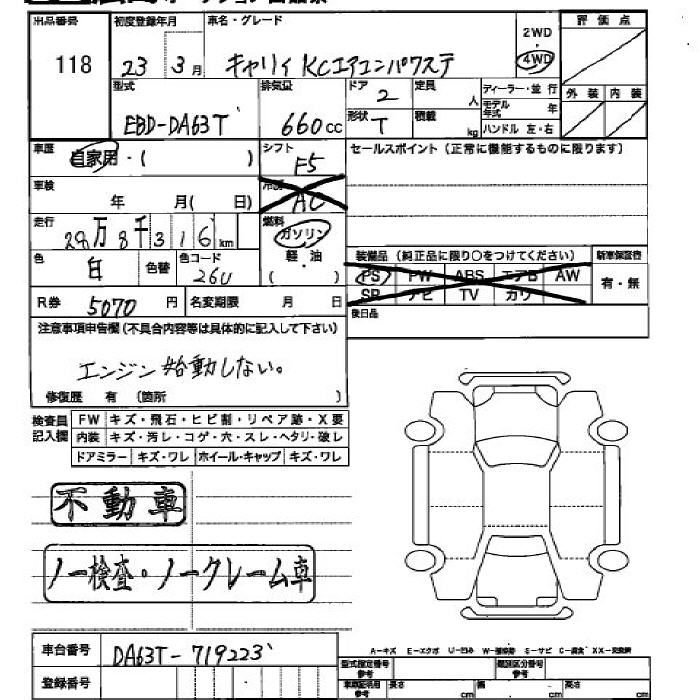 出品番号 初度登録年月 車名・グレード 2WD 評価点
118 23 3月 キャリィ KCエアコンパワステ 4WD
型式 排気量 ドア 定員 ディーラー・並 行 外装 内装
2 人 モデル年式 年
EBD-DA63T 660cc 形状 T 積載 kg ハンドル 左・右
車歴 自家用・( ) シフト F5 セールスポイント（正常に機能するものに限ります）
車検 年 月( 日) 冷房 AC
走行 28万8千316km 燃料 ガソリン
軽・油 装備品（純正品に限り○をつけてください） 新車保証書
色 白 色替 色コード 26U PS PW ABS エアB AW 有・無
R券 5070円 名変期限 月 日 SR ナビ TV カワ
後日品
注意事項申告欄（不具合内容等は具体的に記入して下さい）
エンジン始動しない。
修復歴 有（箇所 ）
検査員 FW キズ・飛石・ヒビ割・リペア跡・X要
記入欄 内装 キズ・汚レ・コゲ・穴・スレ・ヘタリ・破レ
ドアミラー キズ・ワレ ホイール・キャップ キズ・ワレ
不動車
ノー検査・ノークレーム車
A-キズ E-エクボ U-凹み W-補修跡 S-サビ C-腐食 XX-交換済
車台番号 DA63T-719223 型式指定番号 参考 類別区分番号 参考
登録番号 車体記録 参考 長さ cm 幅 cm 高さ cm